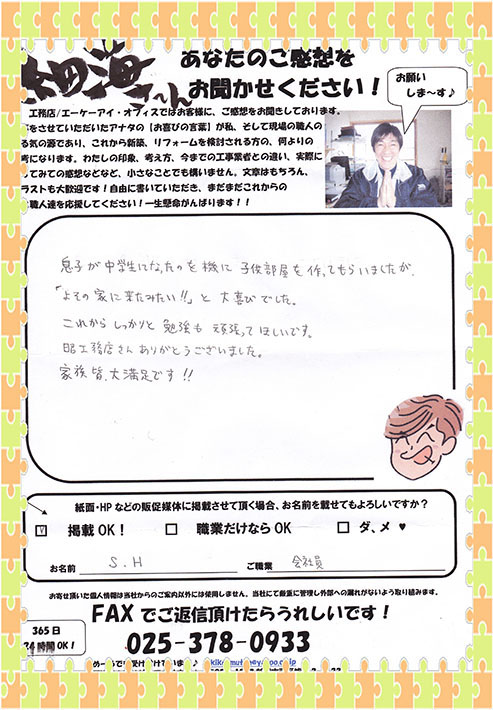 あなたのご感想を
お聞かせください！
お願い
しま～す♪
工務店/エーケーアイ・オフィスではお客様に、ご感想をお聞きしております。
をさせていただいたアナタの【お喜びの言葉】が私、そして現場の職人の
る気の源であり、これから新築、リフォームを検討される方の、何よりの
考になります。わたしの印象、考え方、今までの工事業者との違い、実際に
してみての感想などなど、小さなことでも構いません。文章はもちろん、
ラストも大歓迎です！自由に書いていただき、まだまだこれからの
職人達を応援してください！一生懸命がんばります！！
息子が中学生になったのを機に子供部屋を作ってもらいましたが、
「よその家に来たみたい!!」と大喜びでした。
これからしっかりと勉強も頑張ってほしいです。
昭工務店さんありがとうございました。
家族皆、大満足です!!
紙面・HPなどの販促媒体に掲載させて頂く場合、お名前を載せてもよろしいですか？
掲載OK！ 職業だけならOK ダ、メ♥
お名前 S.H ご職業 会社員
お寄せ頂いた個人情報は当社からのご案内以外には使用しません。当社にて厳重に管理し外部への漏れがないよう取り組みます。
FAXでご返信頂けたらうれしいです！
365日
24時間OK！
025-378-0933